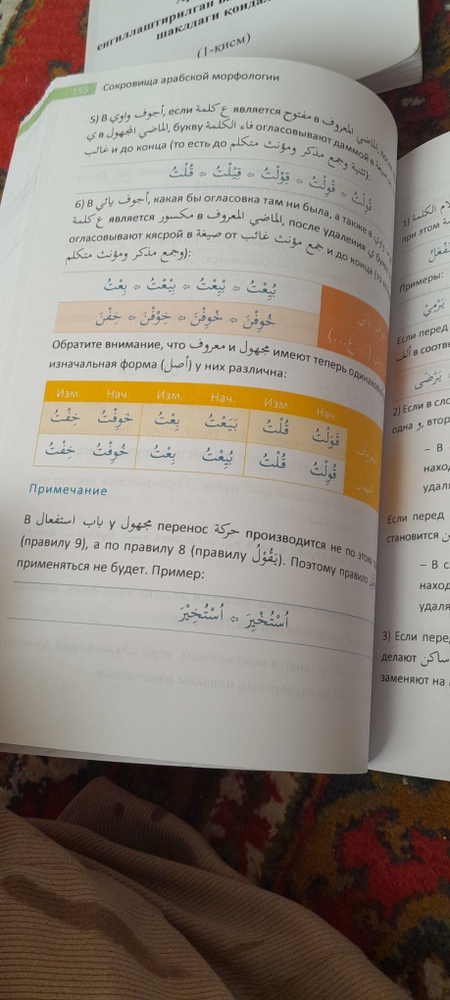 енгиллаштирилган
шаклдаги
(1-қисм)
155 Сокровища арабской морфологии
5) В أجوف واوي, если ع كلمة является مفتوح в الماضي المعروف, после
الماضي المجهول, букву فاء الكلمة огласовывают даммой в
غائب и до конца (то есть до تثنية وجمع مذكر ومؤنث متكلم):
قُوِلْتُ ⇦ قُوِلْتُ ⇦ قِوْلْتُ ⇦ قِيْلْتُ ⇦ قُلْتُ
6) В أجوف يائي, какая бы огласовка там ни была, а также в
ع كلمة является مكسور в الماضي المعروف, после удаления ي
огласовывают кясрой в صيغة от جمع مؤنث غائب и до конца (то
وجمع مذكر ومؤنث متكلم):
بُيِعْتُ ⇦ بُيِعْتُ ⇦ بِيْعْتُ ⇦ بِعْتُ
خُوِفْنَ ⇦ خُوِفْنَ ⇦ خِوْفْنَ ⇦ خِفْنَ
Обратите внимание, что معروف и مجهول имеют теперь
изначальная форма (أصل) у них различна:
Изм. Нач. Изм. Нач. Изм. Нач.
خِفْتُ خَوِفْتُ بِعْتُ بَيَعْتُ قُلْتُ قَوَلْتُ
خِفْتُ خُوِفْتُ بِعْتُ بُيِعْتُ قُلْتُ قُوِلْتُ
Примечание
В باب استفعال у مجهول перенос حركة производится не по этому
(правилу 9), а по правилу 8 (правилу يَقُوْلُ). Поэтому правило
применяться не будет. Пример:
اُسْتُخْيِرَ ⇦ اُسْتُخِيْرَ
1)
при этом
Примеры:
يَرْمِيْ
Если перед
ألف в
يَرْضَى
2) Если в
одна و,
– В
наход
удаля
Если перед
становится
– В
наход
удаля
3) Если пере
делают ساكن
заменяют на